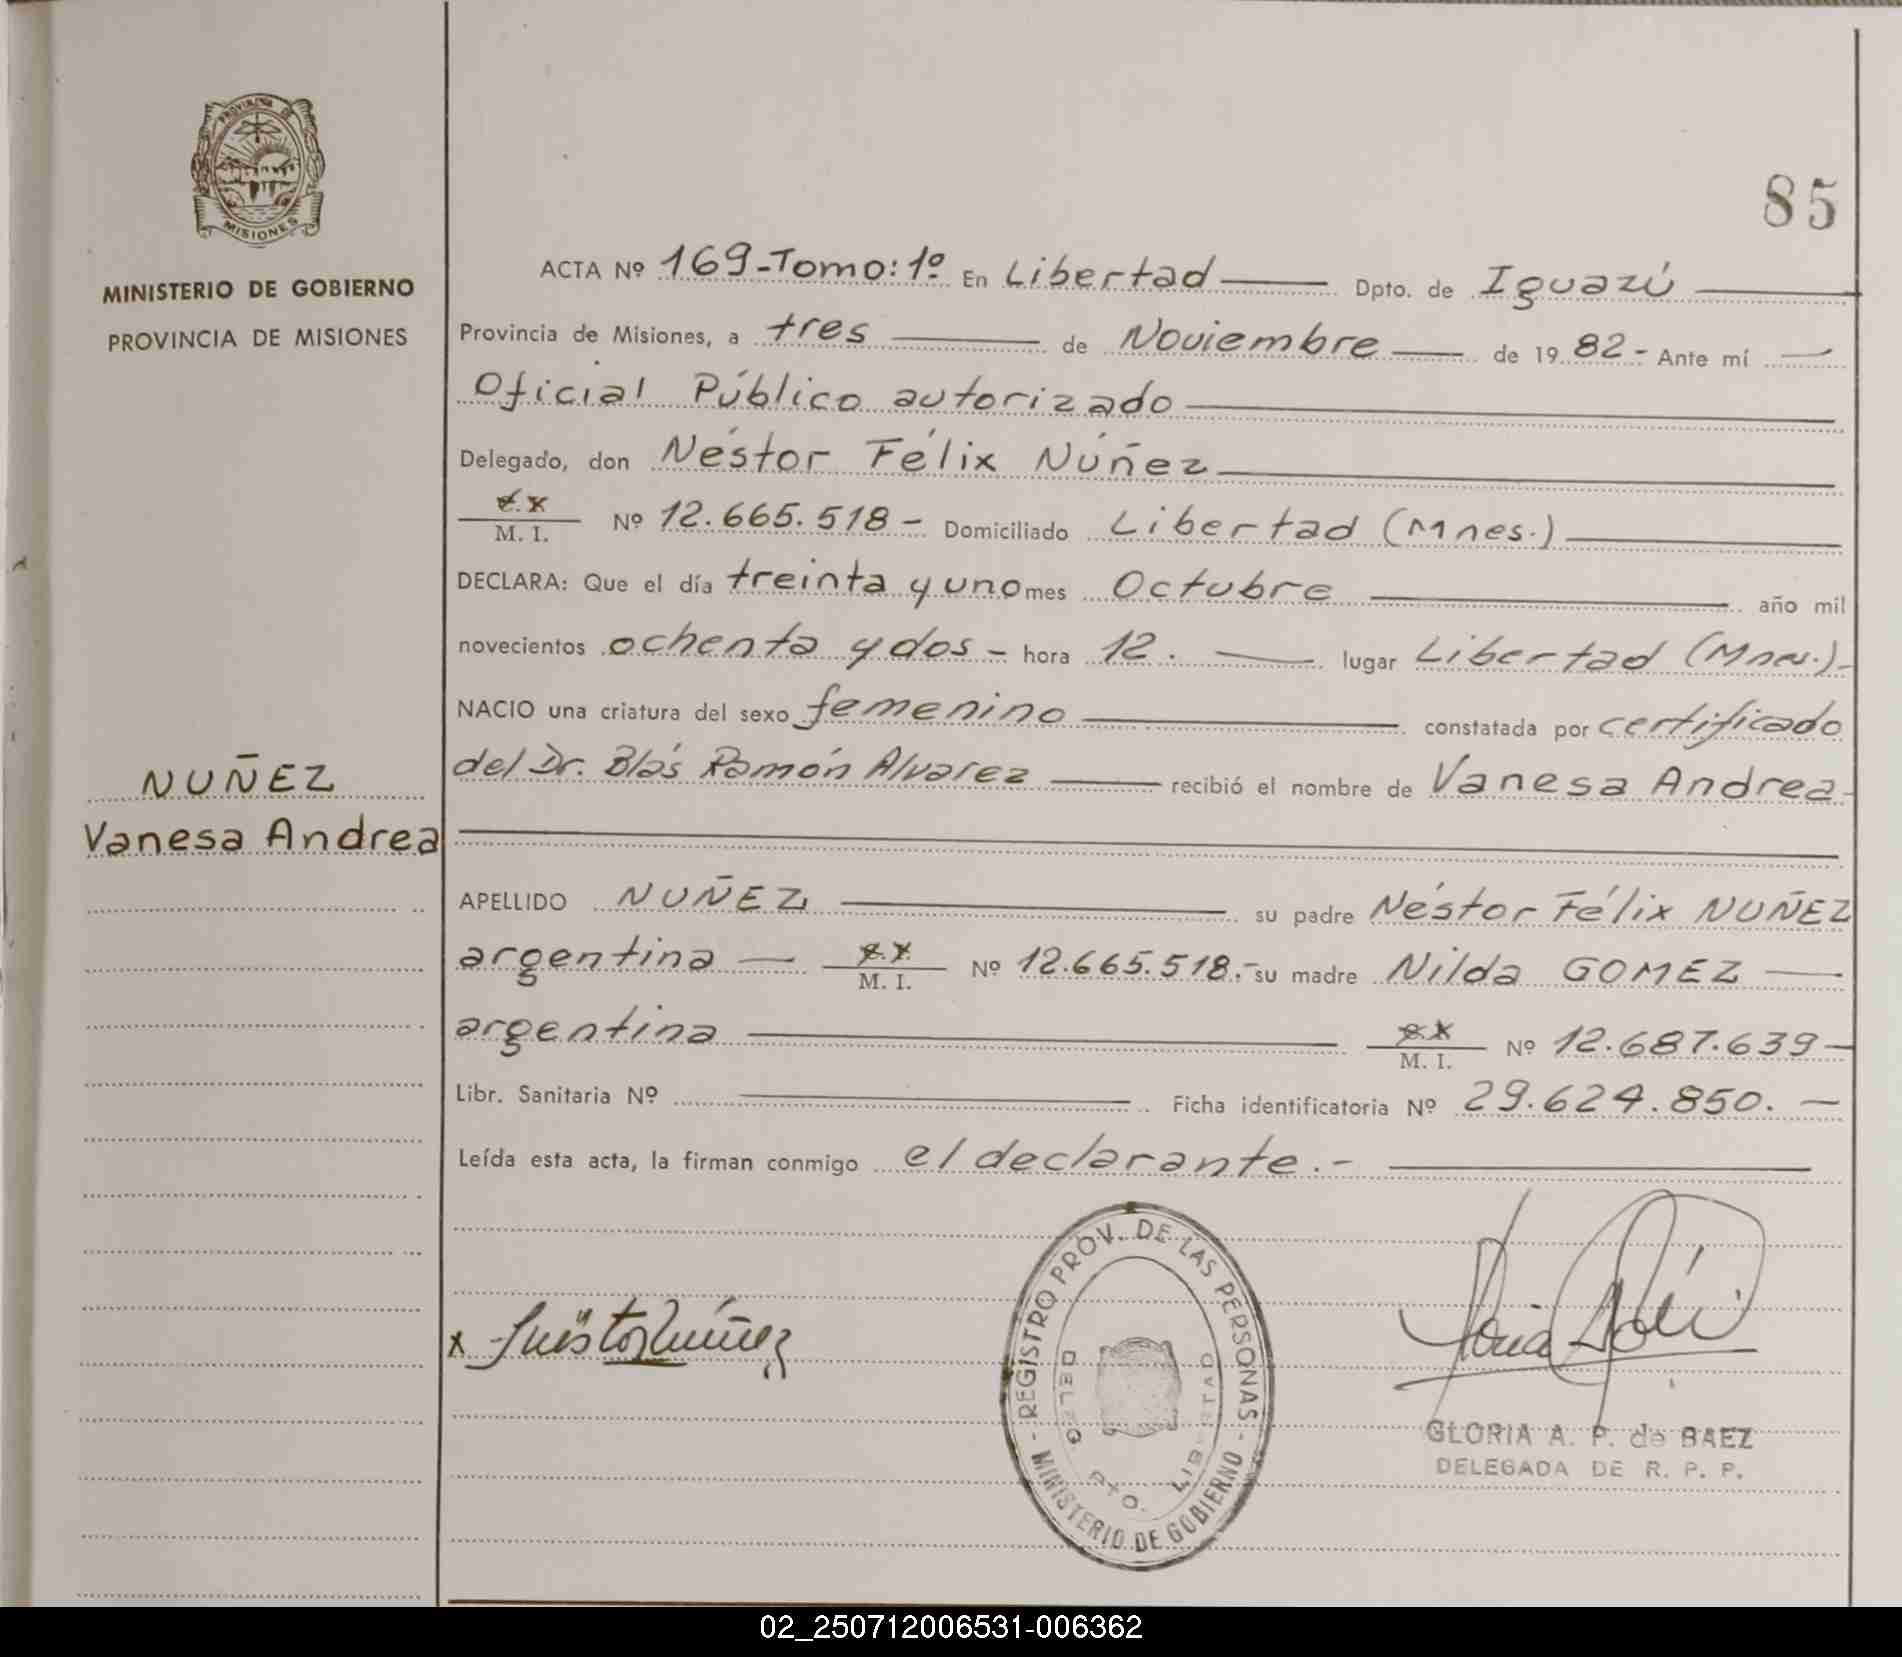 PROVINCIA DE
MISIONES
MINISTERIO DE GOBIERNO
PROVINCIA DE MISIONES
85
ACTA Nº 169-Tomo: 1º En Libertad Dpto. de Iguazú
Provincia de Misiones, a tres de Noviembre de 1982.- Ante mí
Oficial Público autorizado
Delegado, don Néstor Félix Núñez
M. I. Nº 12.665.518- Domiciliado Libertad (Mnes.)
DECLARA: Que el día treinta y uno mes Octubre año mil
novecientos ochenta y dos - hora 12. lugar Libertad (Mnes.)-
NACIO una criatura del sexo femenino constatada por certificado
del Dr. Blás Ramón Alvarez recibió el nombre de Vanesa Andrea
NUÑEZ
Vanesa Andrea
APELLIDO NUÑEZ su padre Néstor Félix NUÑEZ
argentina M. I. Nº 12.665.518.- su madre Nilda GOMEZ
argentina M. I. Nº 12.687.639-
Libr. Sanitaria Nº Ficha identificatoria Nº 29.624.850.-
Leída esta acta, la firman conmigo el declarante.-
REGISTRO PROV. DE LAS PERSONAS - MINISTERIO DE GOBIERNO -
LIBERTAD
x Néstor Núñez
GLORIA A. P. de BAEZ
DELEGADA DE R. P. P.
02_250712006531-006362